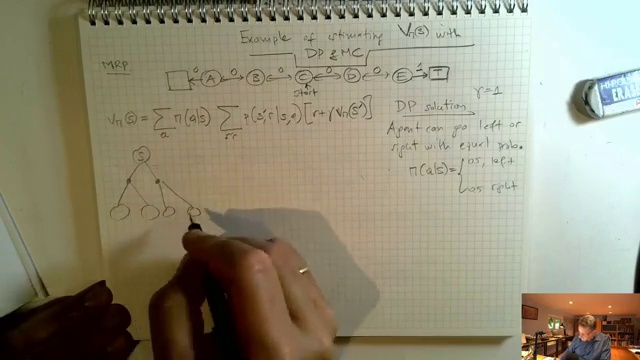 Example of estimating Vπ(s) with
DP & MC
MRP
0 A 0 B 0 C 0 D 0 E 1 T
Start
Vπ(s) = Σ_a π(a|s) Σ_s',r p(s',r|s,a) [r+γVπ(s')]
DP solution γ=1
Agent can go left or
right with equal prob.
π(a|s) = { 0.5, left
0.5 right
S
ERAS